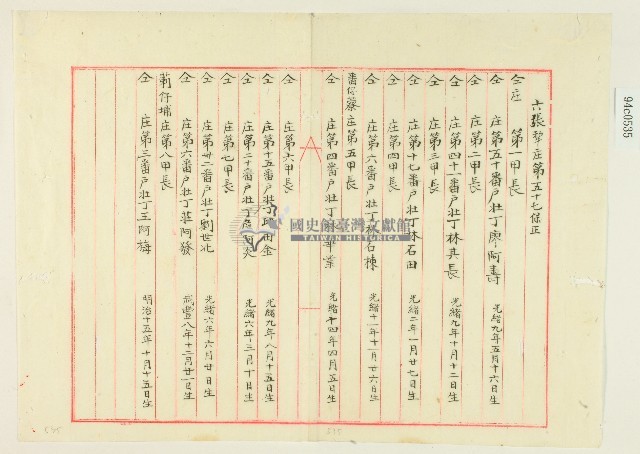 六張犂庄第五十七保正
仝庄 第一甲長
仝 庄第五十番戶壯丁廖阿壽 光緒九年五月十六日生
仝 庄第二甲長
仝 庄第四十一番戶壯丁林其長 光緒九年十月十二日生
仝 庄第三甲長
仝 庄第十七番戶壯丁林石田 光緒二年一月廿七日生
仝 庄第四甲長
仝 庄第六番戶壯丁林石棟 光緒十一年十一月廿六日生
番仔藔庄第五甲長
仝 庄第四番戶壯丁 業 光緒十四年四月五日生
仝 庄第六甲長
仝 庄第十五番戶壯丁邱田金 光緒九年八月十五日生
仝 庄第二十番戶壯丁 阿炎 光緒六年三月十日生
仝 庄第七甲長
仝 庄第廿二番戶壯丁劉世兆 光緒六年六月廿日生
仝 庄第六番戶壯丁葉阿發 咸豐八年十二月廿一日生
莿仔埔庄第八甲長
仝 庄第三番戶壯丁王阿梅 明治十五年十月十五日生
國史館臺灣文獻館
TAIWAN HISTORICA
94c0535
535
535